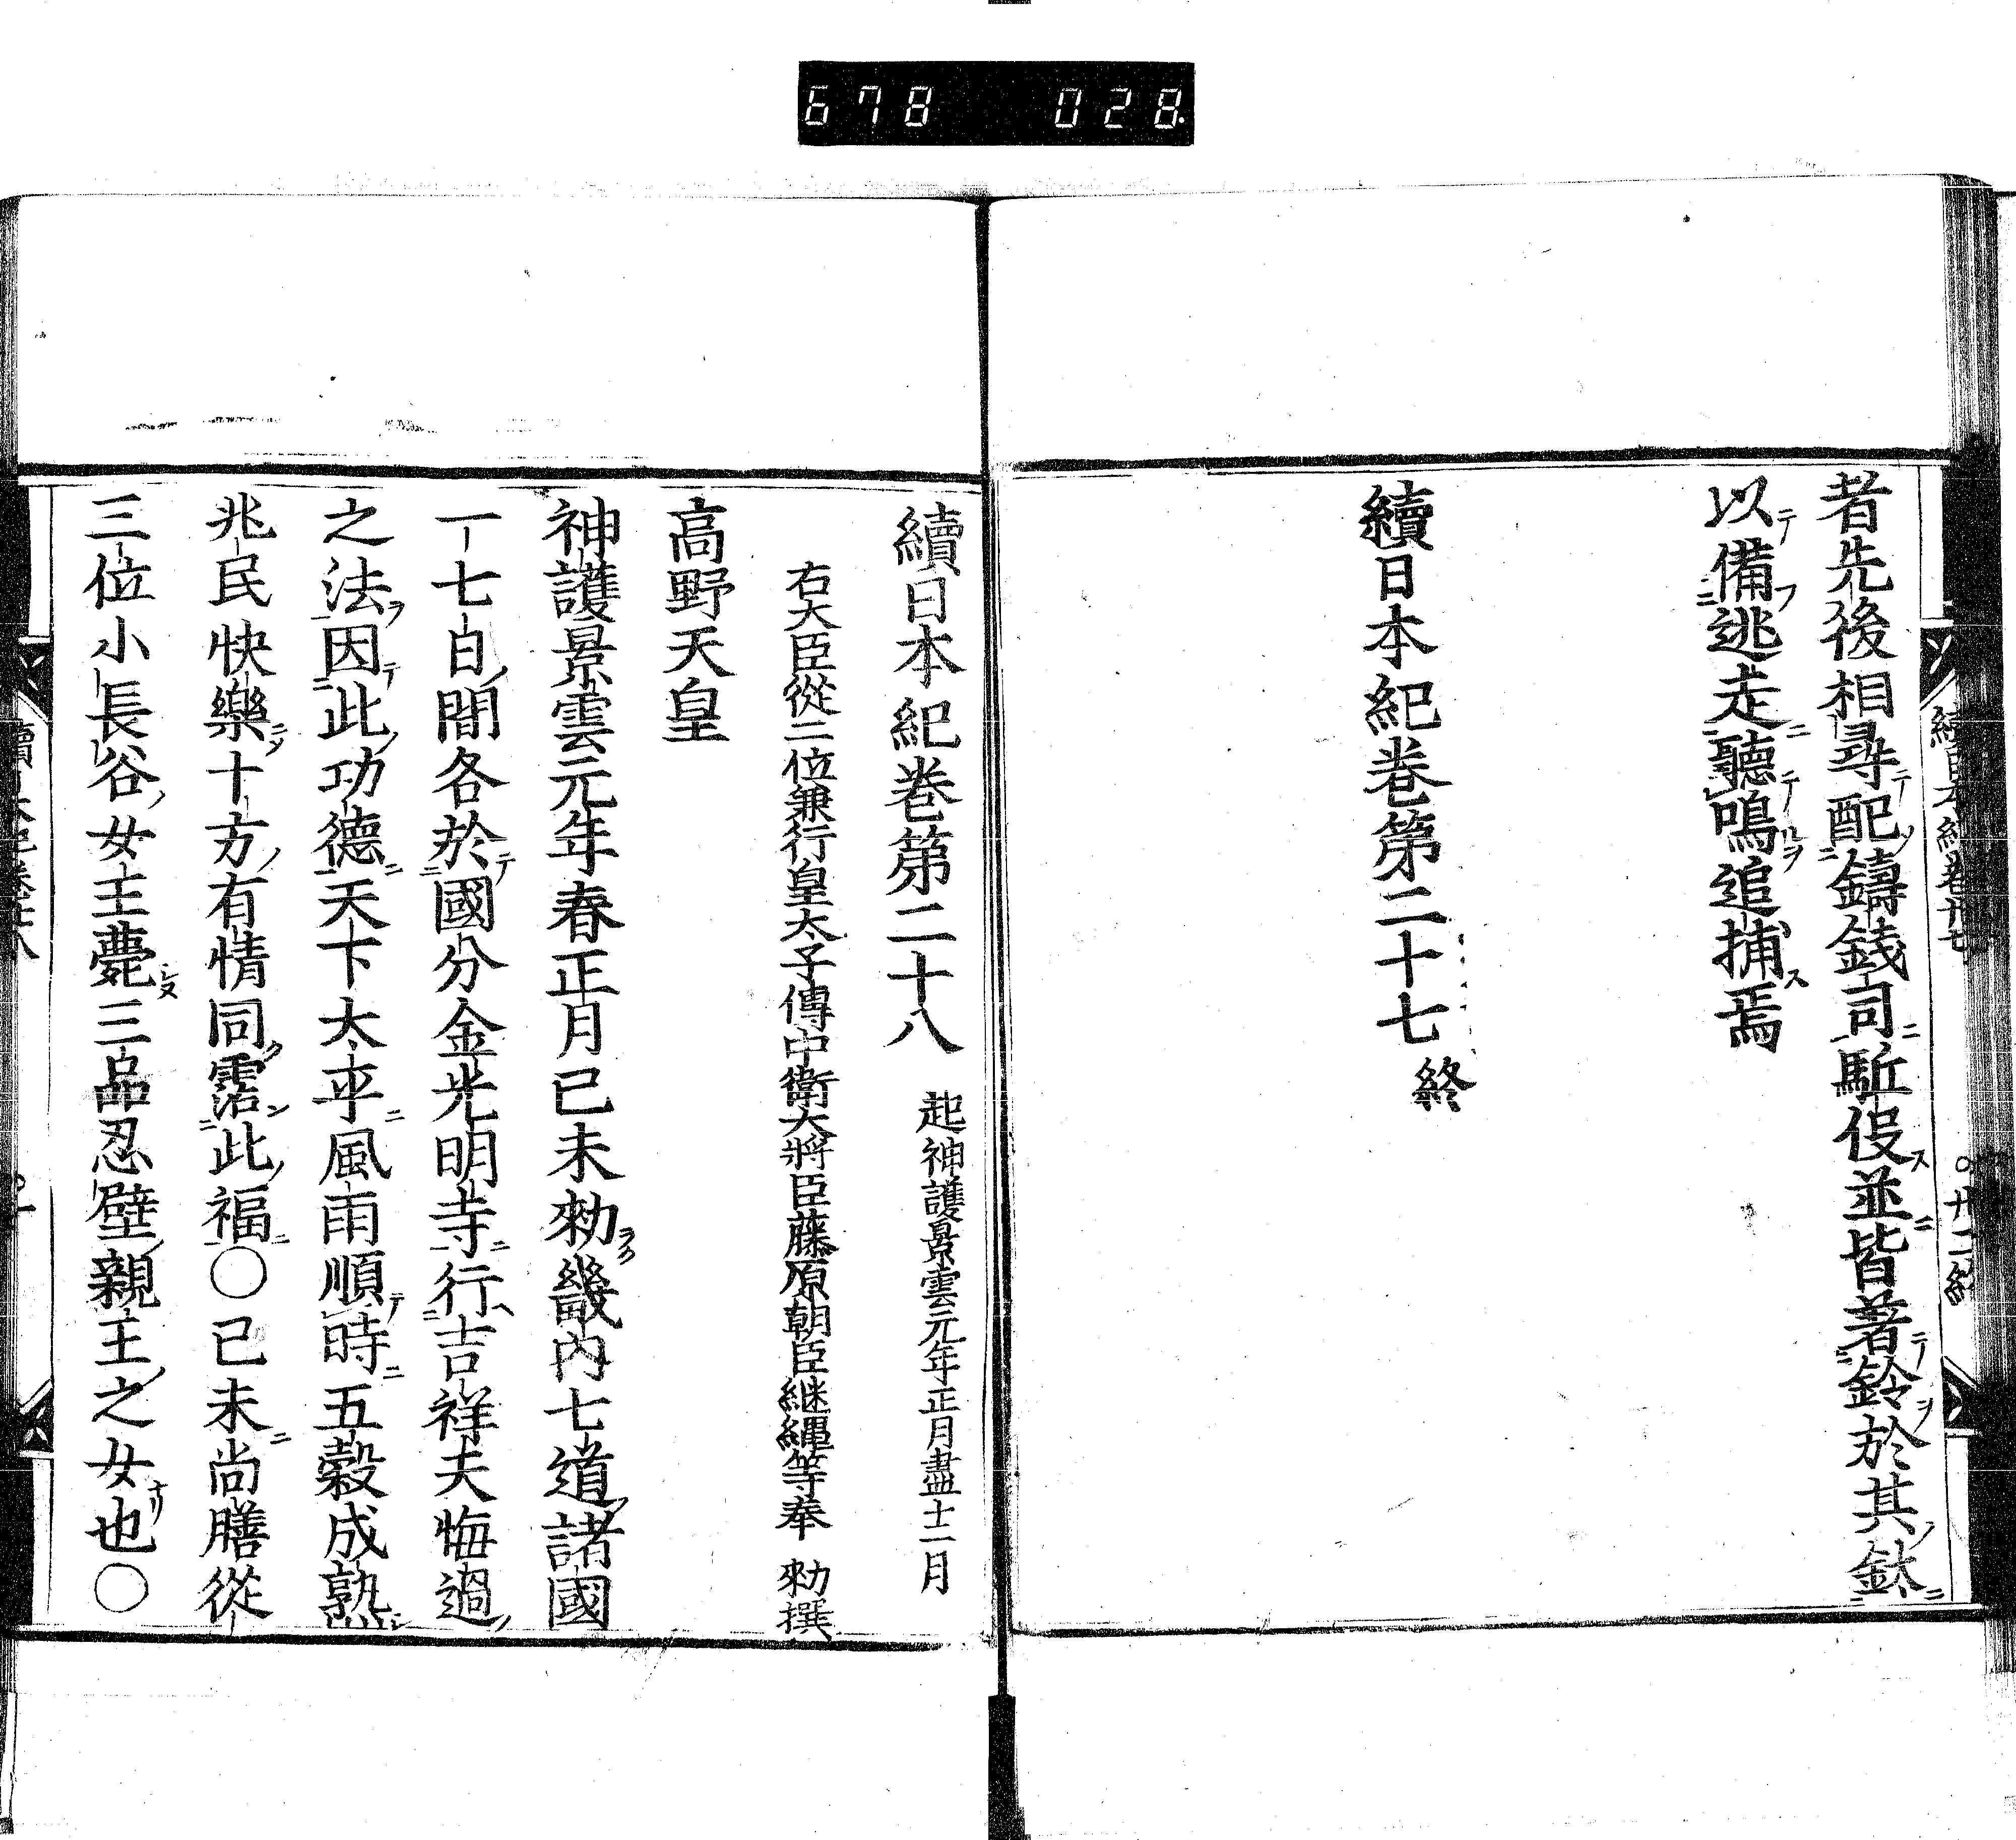 678 028
續日本紀卷廿七
○廿二終
者先後相尋配鑄錢司駈役並皆著鈴於其釱
以備逃走聽鳴追捕焉
續日本紀卷第二十七 終
續日本紀卷第二十八 起神護景雲元年正月盡十二月
右大臣從二位兼行皇太子傅中衛大將臣藤原朝臣継縄等奉 勅撰
高野天皇
神護景雲元年春正月己未勅畿內七道諸國
一七日間各於國分金光明寺行吉祥天悔過
之法因此功德天下太平風雨順時五穀成熟
兆民快樂十方有情同霑此福○己未尚膳從
三位小長谷女王薨三品忍壁親王之女也○